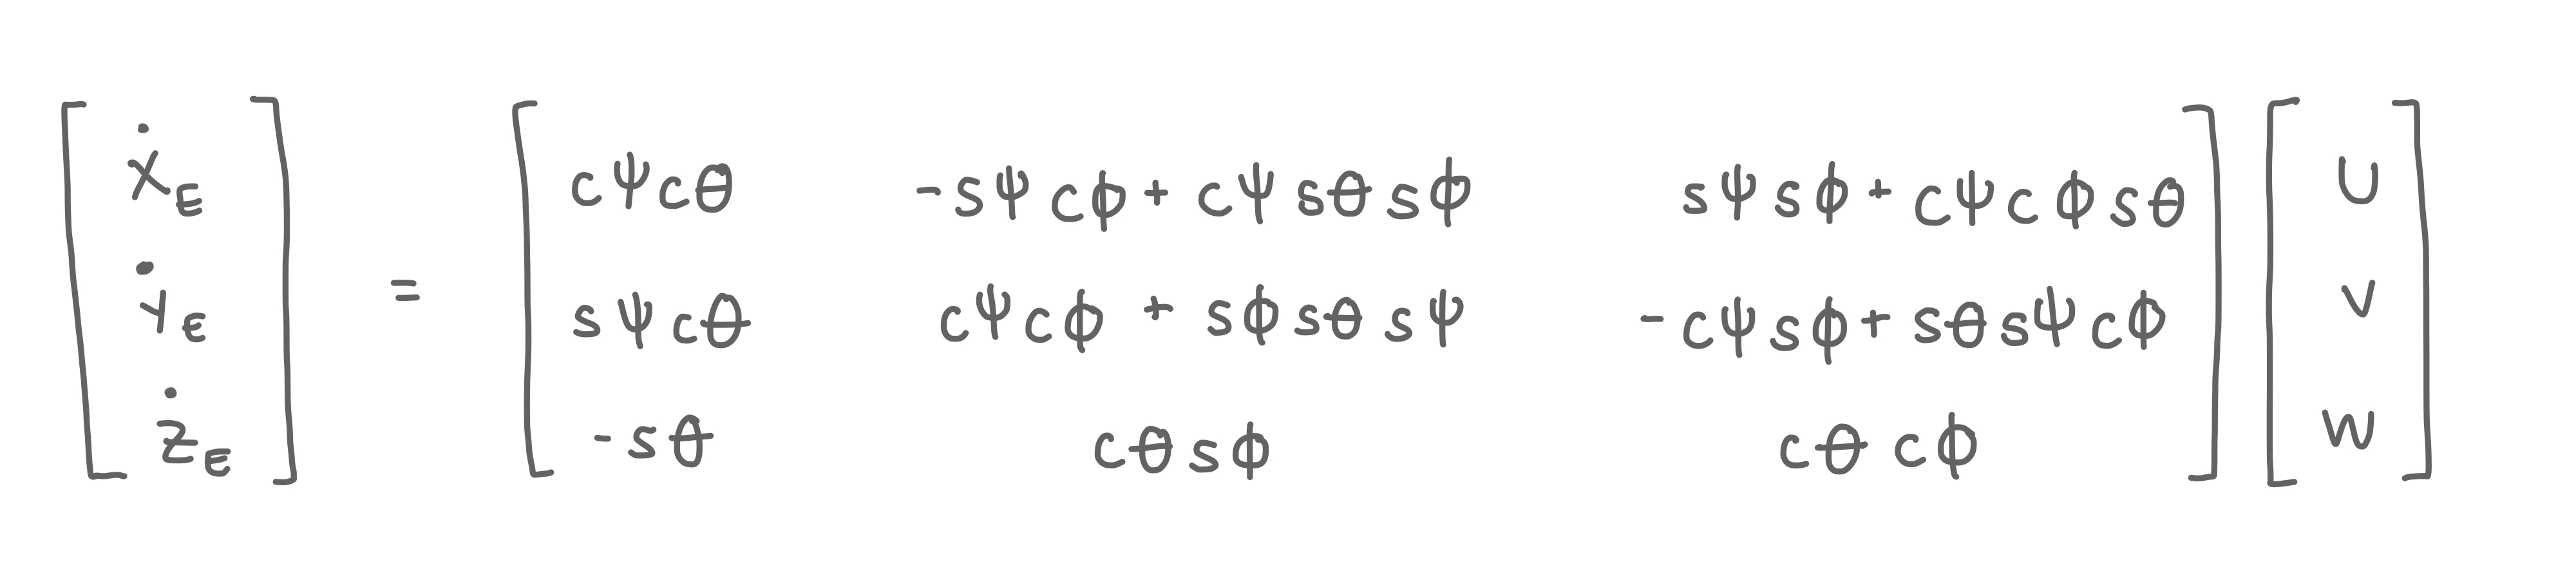 ẋ_E = cψcθ -sψcϕ + cψsθsϕ sψsϕ + cψcϕsθ U
ẏ_E sψcθ cψcϕ + sϕsθsψ -cψsϕ + sθsψcϕ V
ż_E -sθ cθsϕ cθcϕ W